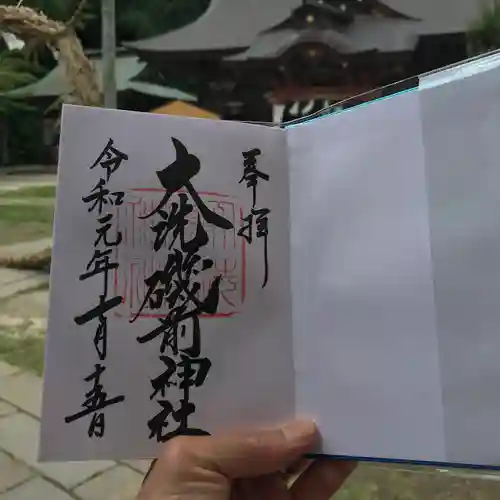 奉拝
大洗磯前神社
令和元年十月十五日